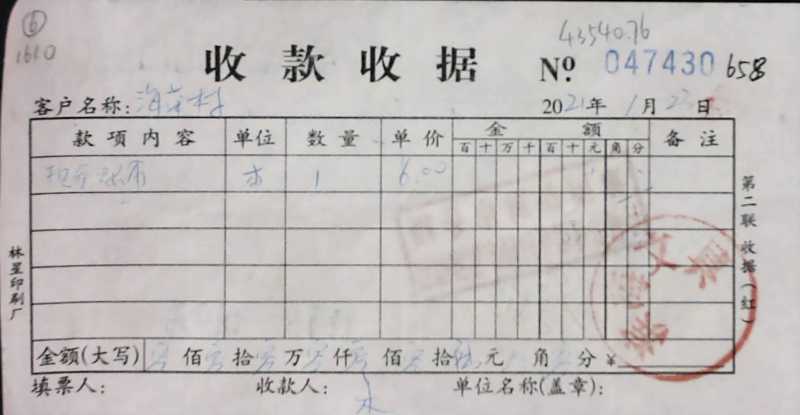 ⑥
1610
43540.76
收款收据 № 047430 658
客户名称:
2021年1月23日
款项内容 单位 数量 单价 金额 备注
百十万千百十元角分
本 1 6.00
第二联 收据(红)
林星印刷厂
金额(大写) 佰 拾 万 仟 佰 拾 元 角 分 ¥
填票人: 收款人: 单位名称(盖章):